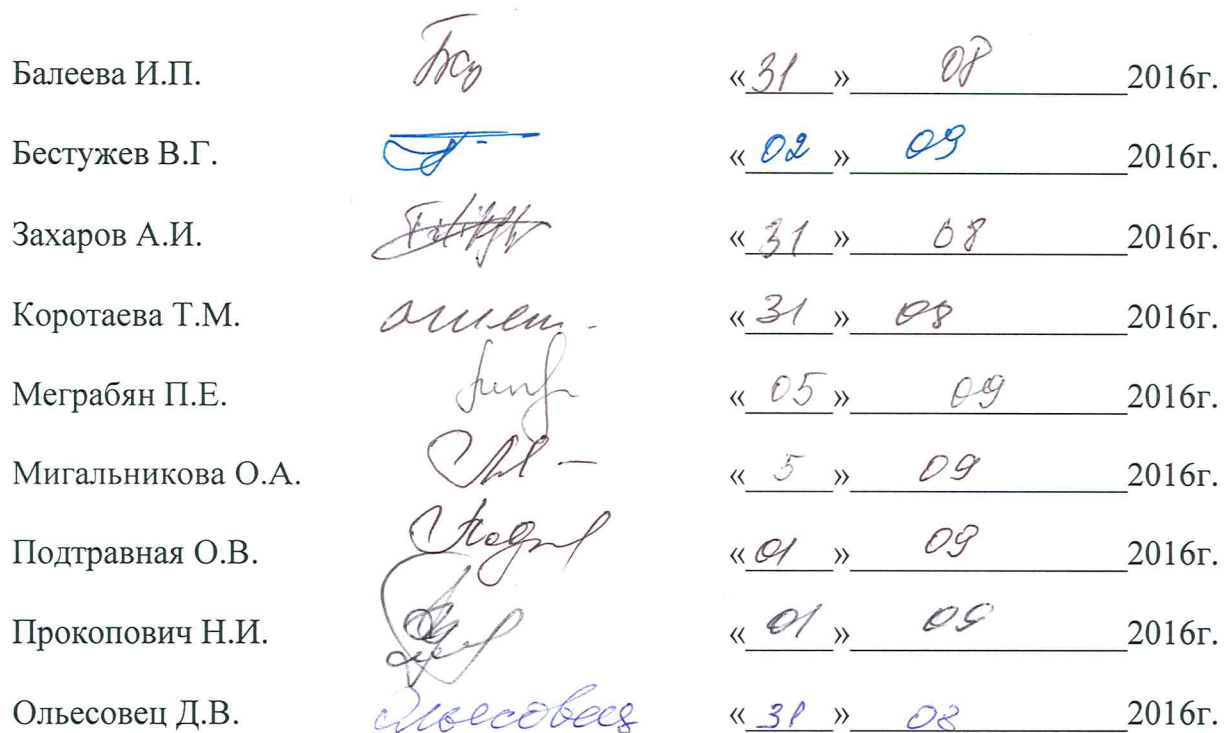 Балеева И.П. «31» 08 2016г.
Бестужев В.Г. «02» 09 2016г.
Захаров А.И. «31» 08 2016г.
Коротаева Т.М. «31» 08 2016г.
Меграбян П.Е. «05» 09 2016г.
Мигальникова О.А. «5» 09 2016г.
Подтравная О.В. «01» 09 2016г.
Прокопович Н.И. «01» 09 2016г.
Ольесовец Д.В. Ольесовец «31» 08 2016г.